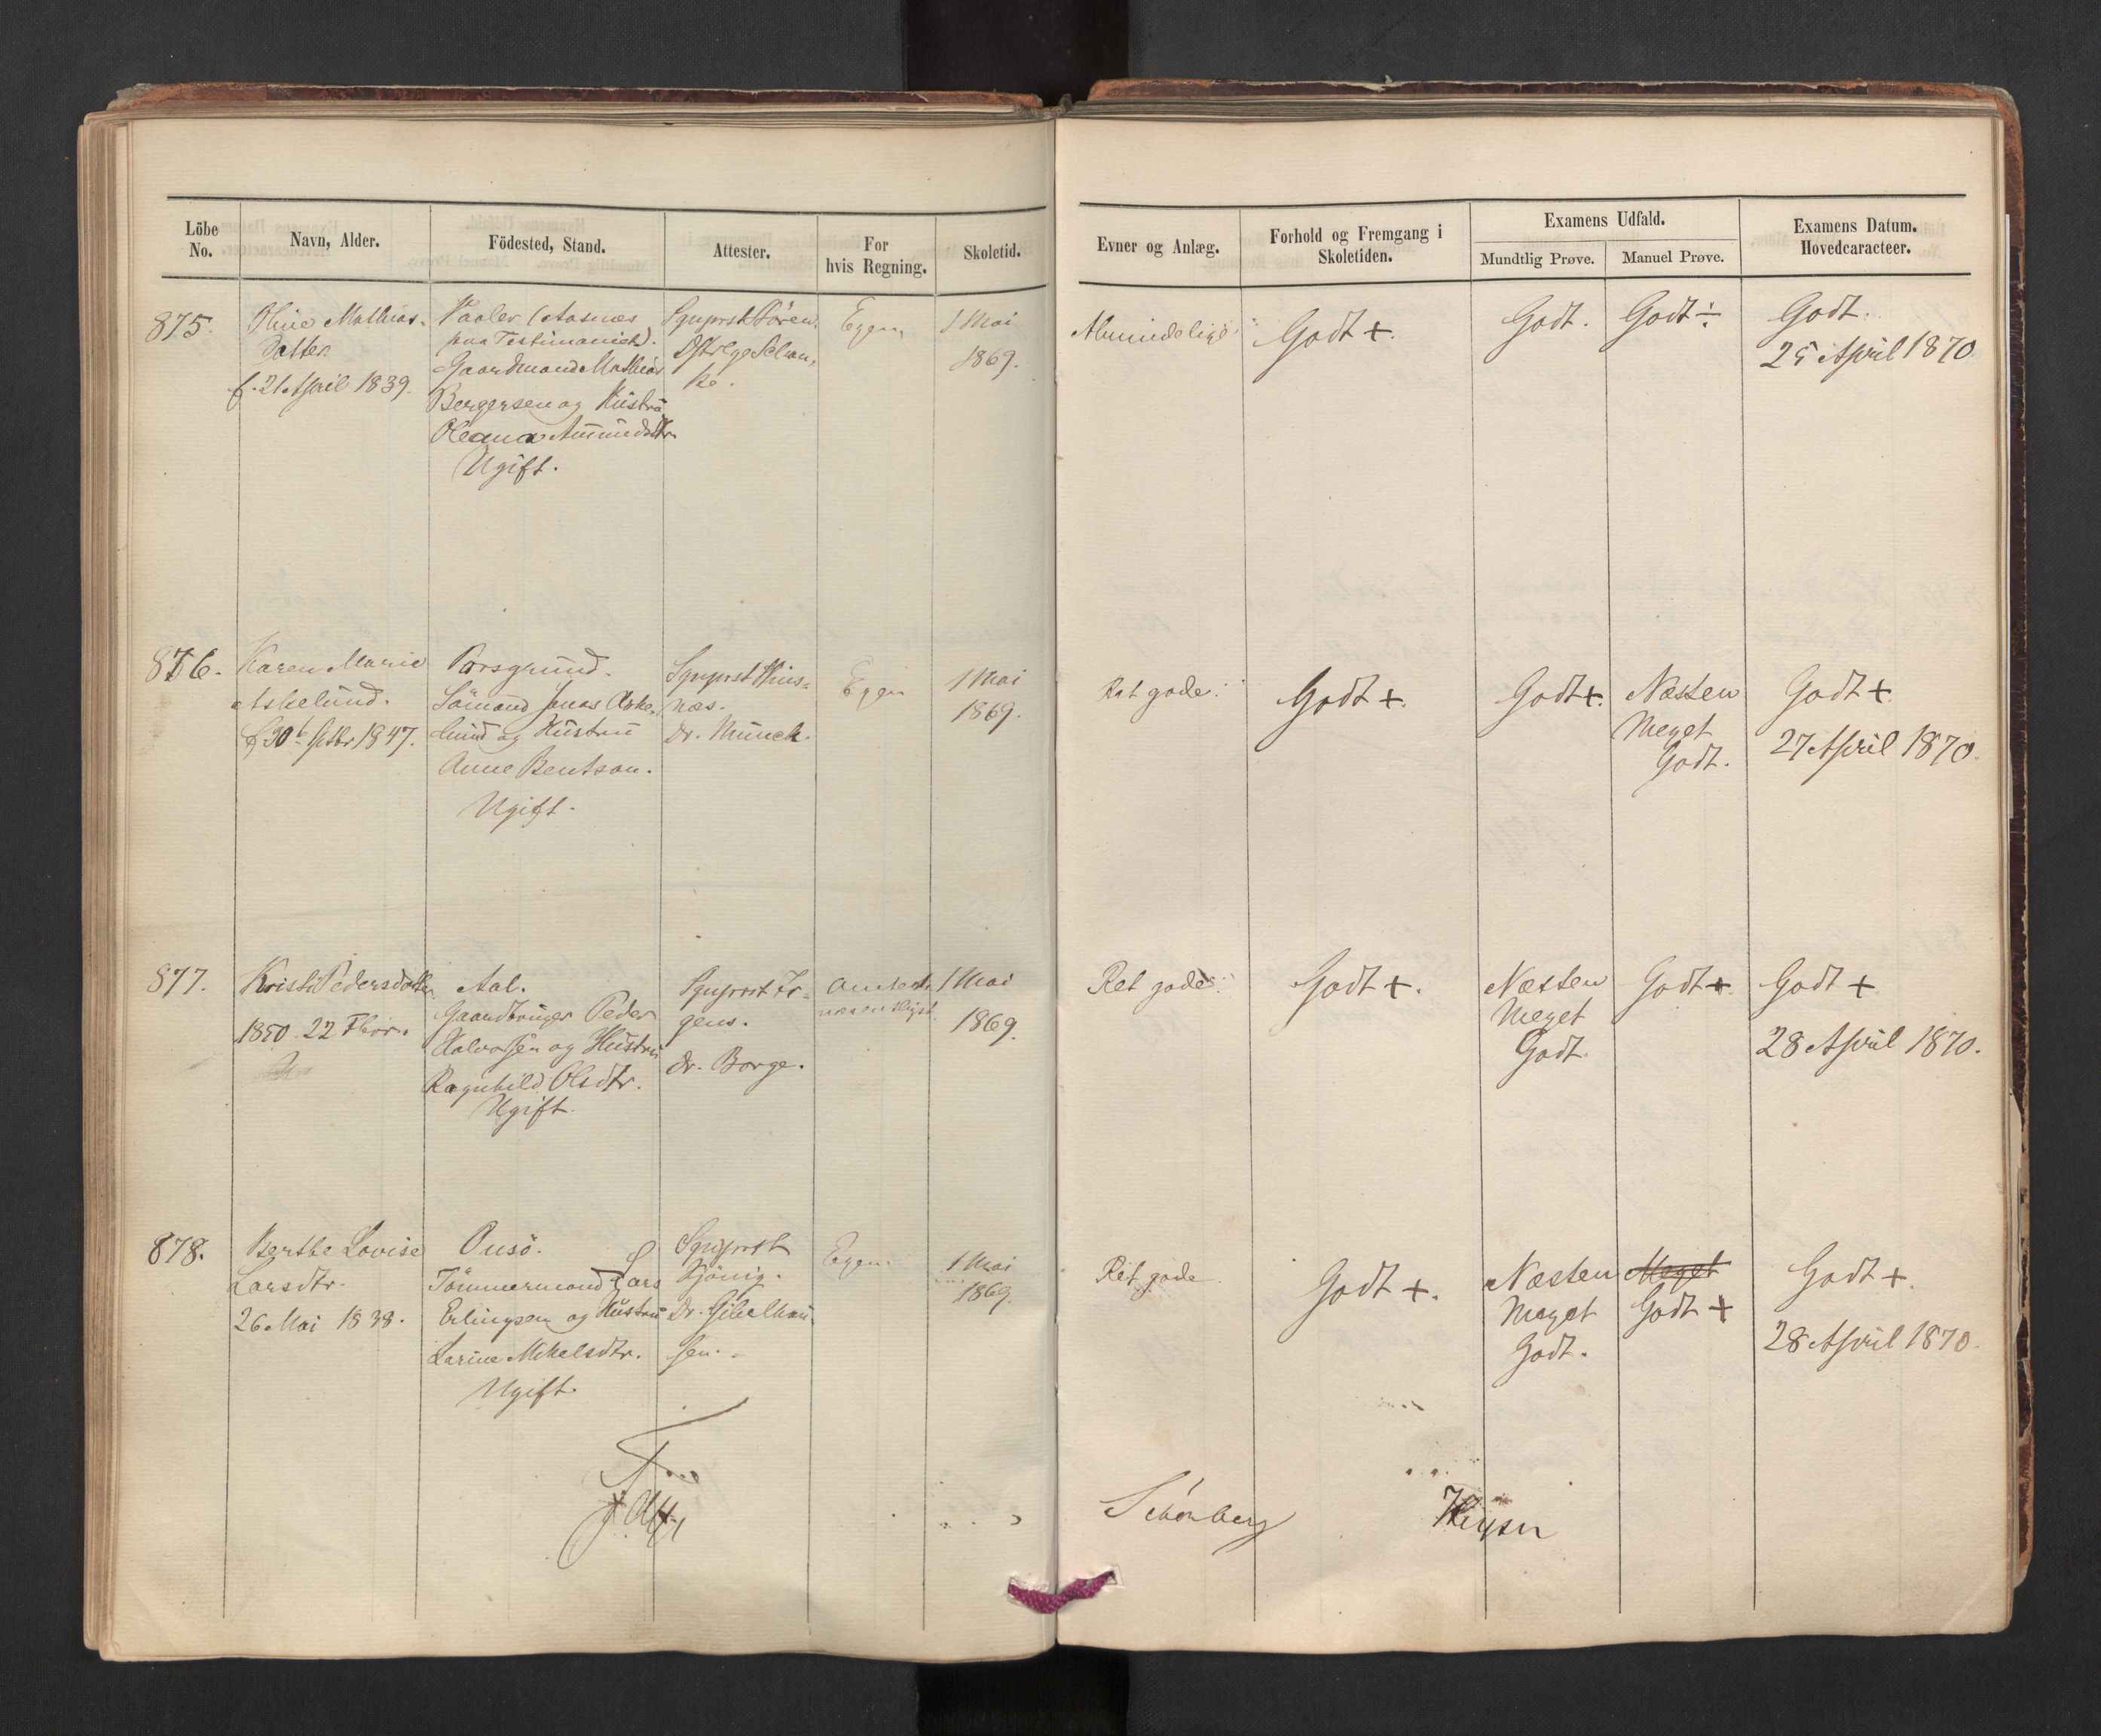 Löbe No.
Navn, Alder.
Födested, Stand.
Attester.
For hvis Regning.
Skoletid.
Evner og Anlæg.
Forhold og Fremgang i Skoletiden.
Examens Udfald.
Mundtlig Prøve.
Manuel Prøve.
Examens Datum.
Hovedcaracteer.
875.
Oline Mathias-
Datter
f. 21 April 1839.
Vaaler (Aasnæs
paa Testimoniet).
Gaardmand Mathias
Bergersen og Hustru
Oleana Amundsdtr
Ugift.
Sgnprst Sören.
Dstrlge Schan,
ke.
Egen
1 Mai
1869.
Almindelige
Godt +.
Godt.
Godt ÷
Godt.
25 April 1870
876.
Karen Marie
Askelund.
f 30te 1847.
Porsgrund.
Sömand Jonas Aske-
lund og Hustru
Anne Bentson.
Ugift.
Sgnprst
næs.
Dr. Munck.
Egen
1 Mai
1869.
Ret gode.
Godt +.
Godt +.
Næsten
Meget
Godt.
Godt +
27 April 1870.
877.
Kristi Pedersdatter
1850. 22 Fbr.
Aal.
Gaardbruger Peder
Halvorsen og Hustru
Ragnhild Olsdtr.
Ugift.
Sgnprst Ir-
gens.
dr. Borge.
Amtet
1 Mai
1869.
Ret gode.
Godt +.
Næsten
Meget
Godt
Godt +.
Godt +
28 April 1870.
878.
Berthe Lovise
Larsdtr.
26 Mai 1838.
Onsö.
Tömmermand Lars
Erlingsen og Hustru
Larine Mikelsdtr.
Ugift.
Sgnprst
Kjönig.
Dr. Gibelhau-
sen.
Egen
1 Mai
1869.
Ret gode
Godt +.
Næsten
Meget
Godt.
Meget
Godt +
Godt +.
28 April 1870.
Schönberg